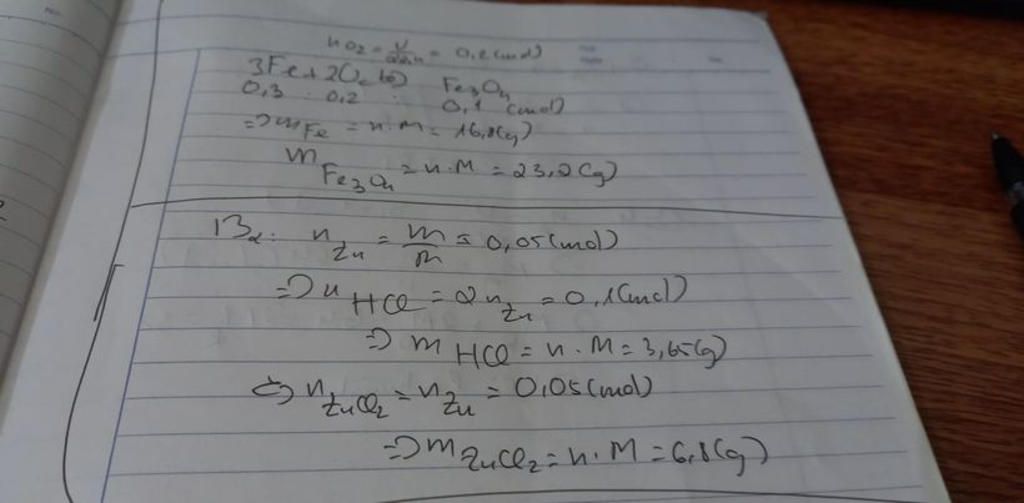 nO2 = V/22,4 = 0,2(mol)
3Fe + 2O2 to) Fe3O4
0,3 0,2 0,1 (mol)
=> mFe = n.M = 16,8(g)
mFe3O4 = n.M = 23,2(g)
nZn = m/M = 0,05(mol)
=> nHCl = 2nZn = 0,1(mol)
=> mHCl = n.M = 3,65(g)
nZnCl2 = nZn = 0,05(mol)
=> mZnCl2 = n.M = 6,8(g)